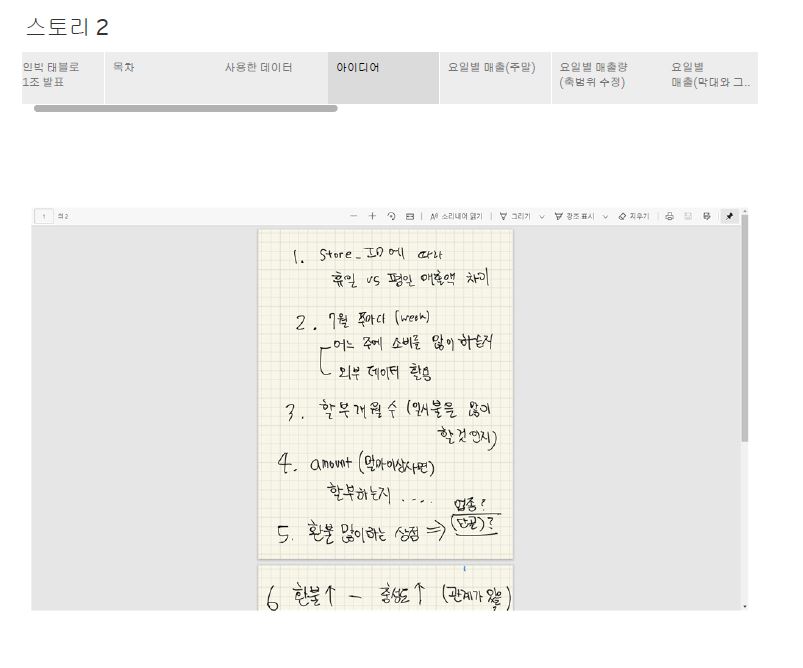 스토리 2
인빅 태블로
1조 발표
목차
사용한 데이터
아이디어
요일별 매출(주말)
요일별 매출량
(축범위 수정)
요일별
매출(막대와 그..
1 의 2
소리내어 읽기
그리기
강조 표시
지우기
1. Store_ID에 따라
휴일 vs 평일 매출액 차이
2. 7월 주마다 (week)
어느 주에 소비를 많이 하는지
외부 데이터 활용
3. 할부개월수 (일시불을 많이
할것인지)
4. amount (얼마이상사면)
할부하는지 ....
5. 환불 많이하는 상점 ⇒ 업종?
(단골)?
6 환불↑ - 충성도↑ (관계가 있을)